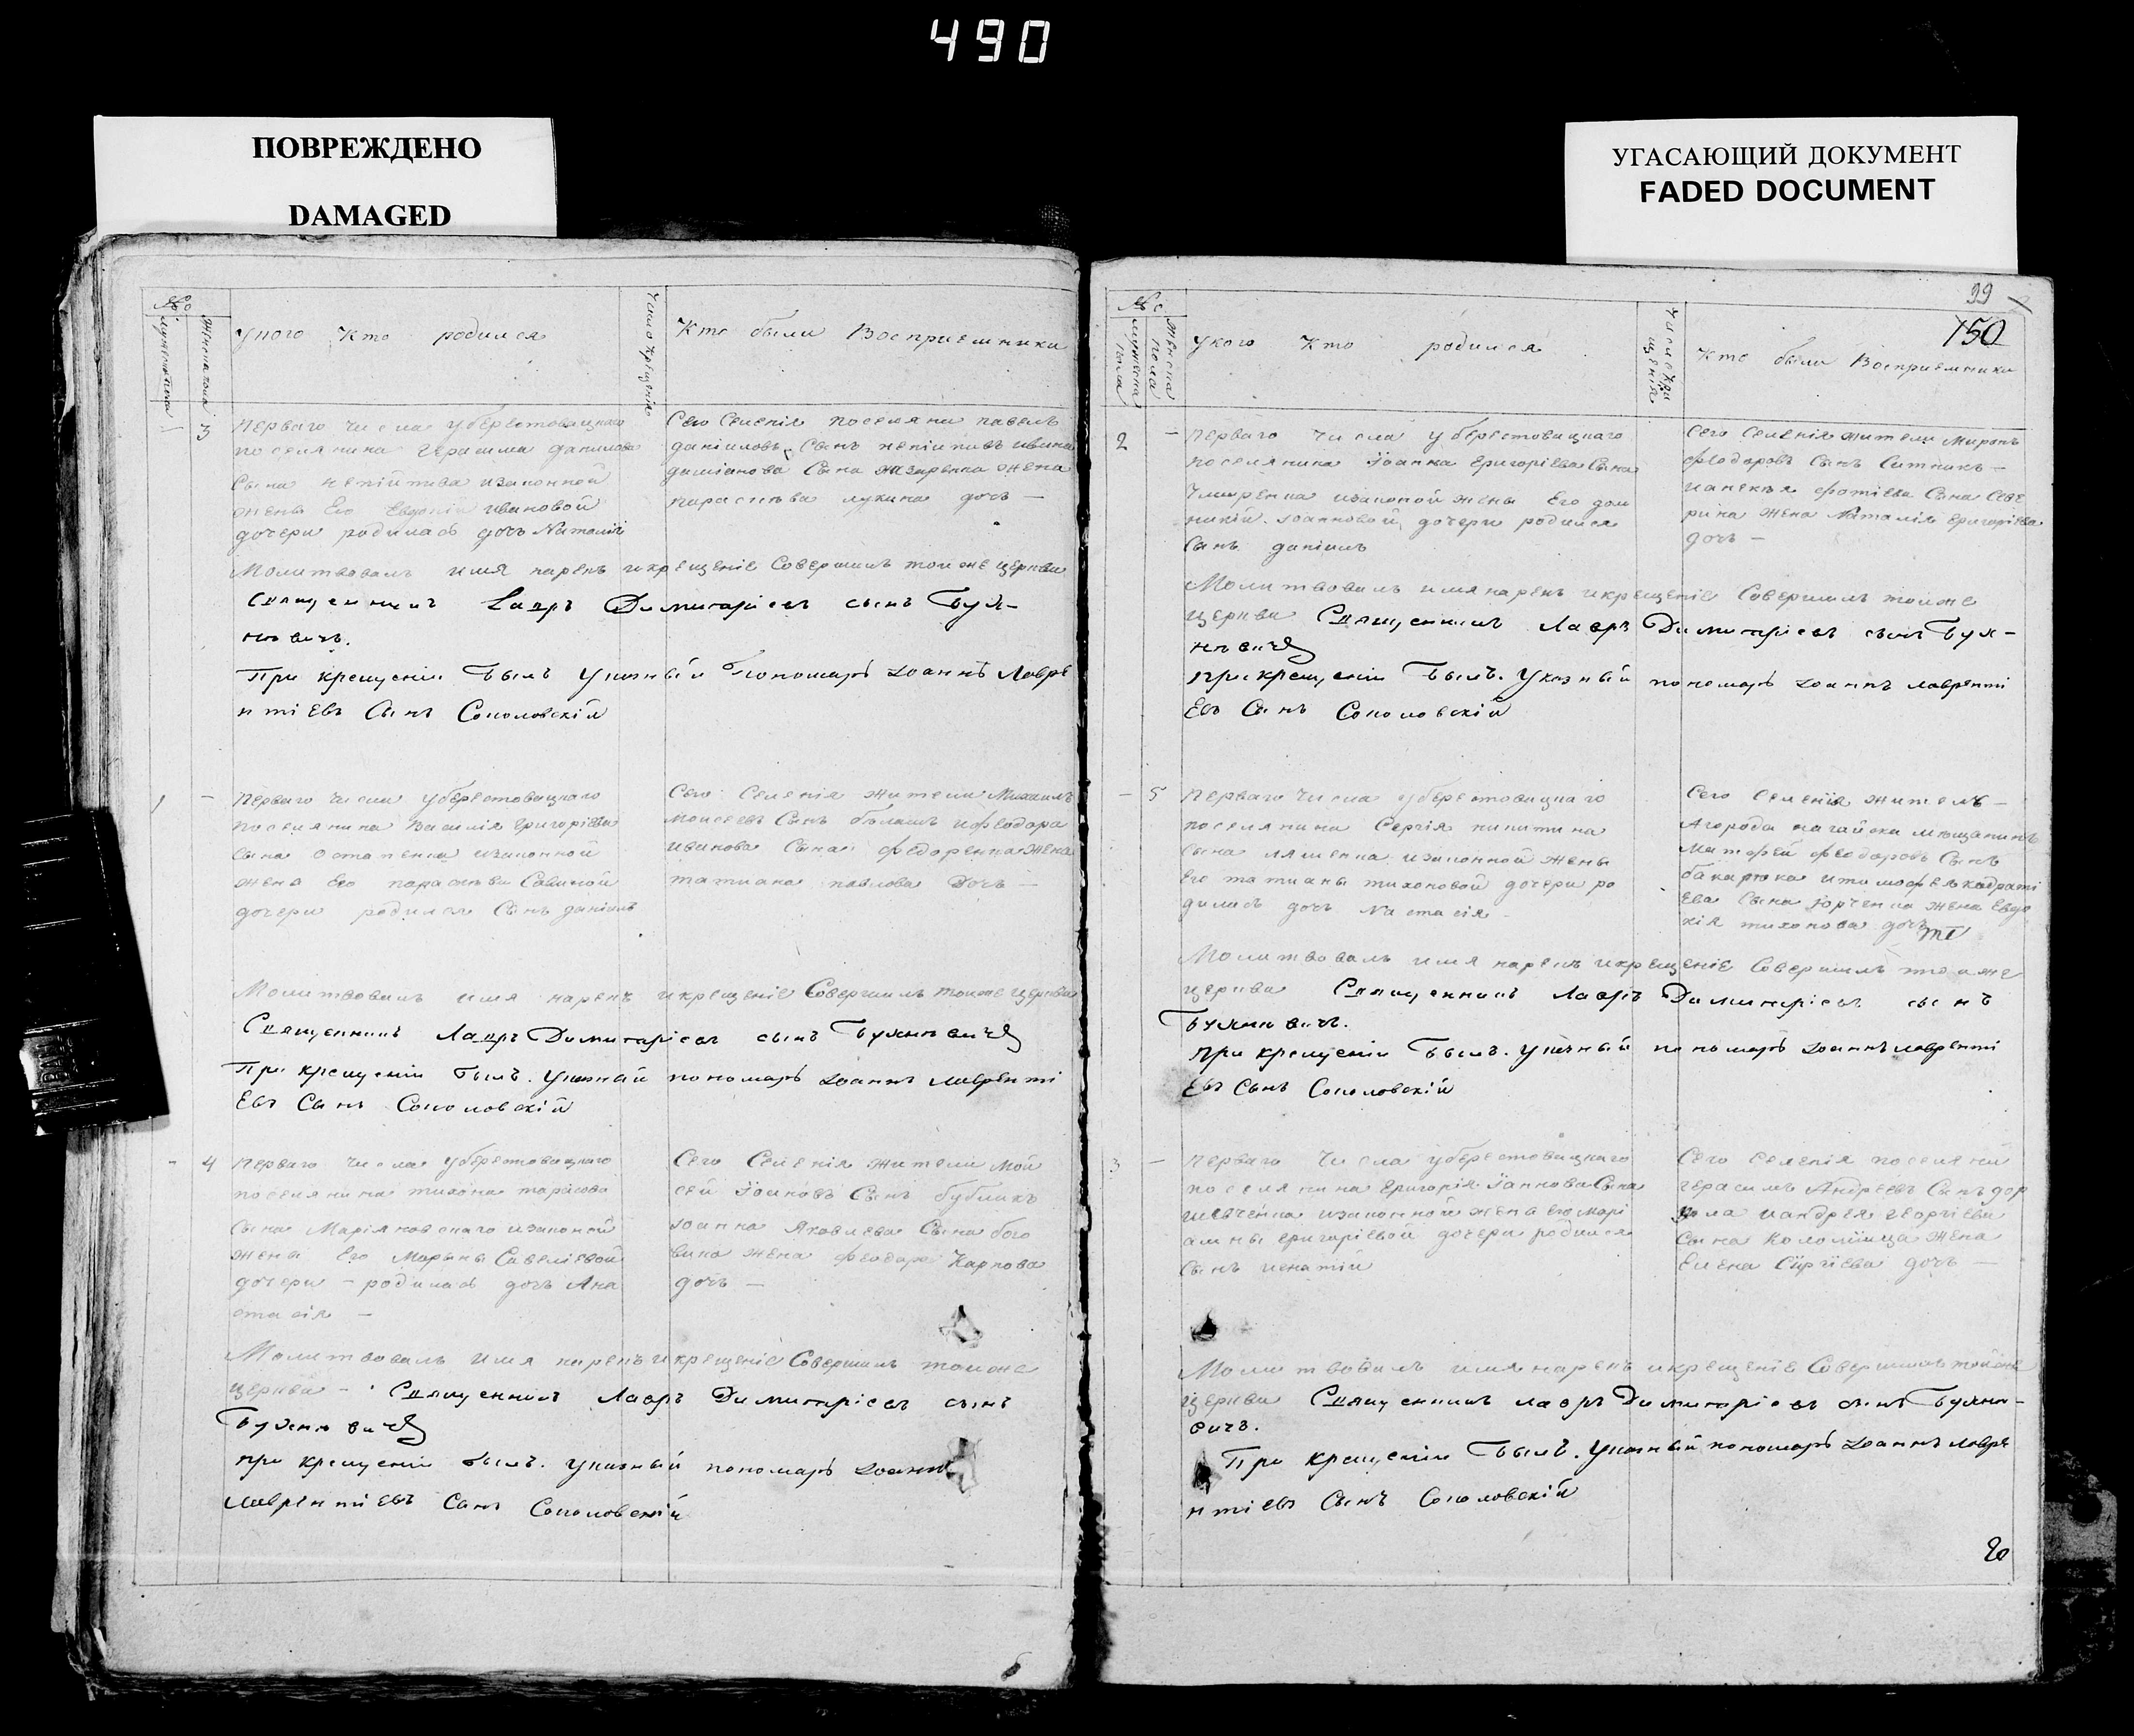 490
ПОВРЕЖДЕНО
DAMAGED
УГАСАЮЩИЙ ДОКУМЕНТ
FADED DOCUMENT
№
Мужеска пола
Женска пола
Укого Кто родился
Число Крещенія
Кто были Восприемники
3
Перваго числа уберестовацкаго
поселянина Герасима данилова
Сына непійпива изаконной
жены Его Евдокіи ивановой
дочери родилась дочъ Наталія
Сего Селенія поселяни павелъ
даніиловъ Сынъ непіипивъ ивана
даміанова Сына назаренка жена
параскева лукина дочъ —
Молитвовалъ имя нарекъ икрещеніе Совершилъ тойже церкви
Священникъ Лавръ Димитріевъ сынъ Бужи-
новичъ.
При крещеніи былъ Указный пономарь Іоаннъ Лавре
нтіевъ Сынъ Соколовскій
1 —
Перваго числа уберестовацкаго
поселянина Василія григоріева
сына остапенка изаконной
жены Его параскевы Савиной
дочери родился Сынъ даніилъ
Сего Селенія жители Михаилъ
моисеевъ Сынъ иѳеодора
иванова Сына федоренка жена
татиана павлова дочъ —
Молитвовалъ имя нарекъ икрещеніе Совершилъ тойже церкви
Священникъ Лавръ Димитріевъ сынъ Бужиновичъ
При крещеніи былъ. Указный пономарь Іоаннъ лавренті
Евъ Сынъ Соколовскій
- 4
Перваго числа уберестовацкаго
поселянина тихона тарасова
Сына Маріяновскаго изаконной
жены Его Марѳы Савеліевой
дочери — родилась дочъ Ана
стасія —
Сего Селенія жители Мой
сей Іоановъ Сынъ бубликъ
Іоанна Яковлева Сына бого
жена ѳеодора Карпова
дочъ —
Молитвовалъ имя нарекъ икрещеніе Совершилъ тойже
церкви — Священникъ Лавръ Димитріевъ сынъ
Бужиновичъ
при крещеніи былъ. указный пономарь Іоаннъ
лаврентіевъ Сынъ Соколовскій
99
150
№
Мужеска пола
Женска пола
Укого Кто родился
Число Кре
щенія
Кто были Восприемники
2 —
Перваго числа уберестовацкаго
поселянина Іоанна григоріева Сына
изаконой жены Его дом
никіи Іоанновой дочери родился
Сынъ даніилъ
Сего Селенія жители Миронъ
ѳеодоровъ Сынъ Ситникъ —
фотіева Сына Севе
рина жена Наталія григоріева
дочъ —
Молитвовалъ имя нарекъ икрещеніе Совершилъ тойже
церкви Священникъ Лавръ Димитріевъ сынъ Бужи-
новичъ
при крещеніи былъ. Указный пономарь Іоаннъ лавренті
Евъ Сынъ Соколовскій
— 5
Перваго числа уберестовацкаго
поселянина Сергія никитина
сына ляшенка изаконной жены
Его татианы тихоновой дочери ро
дилась дочъ Настасія
Сего Селенія житель —
Агорода нагайска мещанинъ
Матфей ѳеодоровъ Сынъ
кадраті
Ева Сына юрченка жена Евдо
кія тихонова дочъ
Молитвовалъ имя нарекъ икрещеніе Совершилъ тойже
церкви Священникъ Лавръ Димитріевъ сынъ
Бужиновичъ.
при крещеніи былъ. указный пономарь Іоаннъ лавренті
Евъ Сынъ Соколовскій
3 —
Перваго числа уберестовацкаго
поселянина григорія Іаннова Сына
шевченка изаконной жены Его Марі
амны григоріевой дочери родился
Сынъ игнатій
Сего Селенія поселяни
герасимъ Андреевъ Сынъ
иандрея георгіева
Сына Коломійца жена
Елена Сиргіева дочъ —
Молитвовалъ имя нарекъ икрещеніе Совершилъ тойже
церкви Священникъ лавръ Димитріевъ сынъ Бужино-
вичъ.
При крещеніи былъ. Указный пономарь Іоаннъ лавре
нтіевъ Сынъ Соколовскій